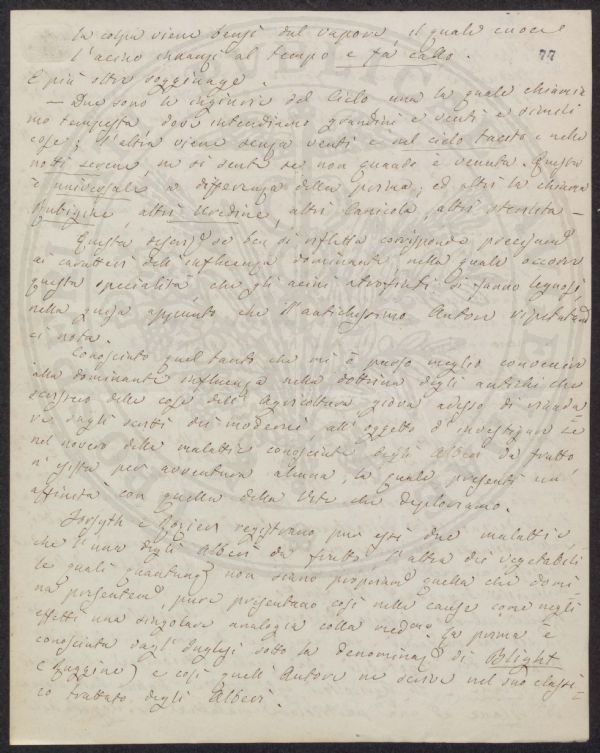 la colpa viene bensì dal vapore il quale cuoce
l'acino innanzi al tempo e fà callo.
77
E più oltre soggiunge.
— Due sono le ingiurie del Cielo una la quale chiamia
mo tempesta dove intendiamo grandini e venti e simili
cose; l'altra viene senza venti e sul cielo tacito e nelle
notti serene, ne si sente se non quando è venuta. Questa
è universale a differenza della prima; ed altri la chiama
Rubigine, altri Uredine, altri Canicola, altri sterilità —
Questa descriz.e se ben si rifletta corrisponde precisam.e
ai caratteri dell'influenza dominante, nella quale occorre
questa specialità che gli acini atrofizzati si fanno legnosi
nella guisa appunto che l'antichissimo Autore
ci nota.
Conosciuto quel tanto che mi è parso meglio convenire
alla dominante influenza nella dottrina degli antichi che
scrissero delle cose dell'Agricoltura giova adesso di
re sugli scritti dei moderni all'oggetto d'investigare se
nel novero delle malattie conosciute degli Alberi da frutto
n'esista per avventura alcuna, la quale presenti un'
affinità con quella della Vite che deploriamo.
Forsyth e Rozier registrano pur essi due malattie
che l'una degli Alberi da frutto l'altra dei vegetabili
le quali quantunq.e non siano propriam.e quella che domi-
na presentem.e, pure presentano così nelle cause come negli
effetti una singolare analogia colla med.ma La prima è
conosciuta dagl'Inglesi sotto la denominaz.e di Blight
(Ruggine) e così quell'Autore ne scrive nel suo classi-
co trattato degli Alberi.